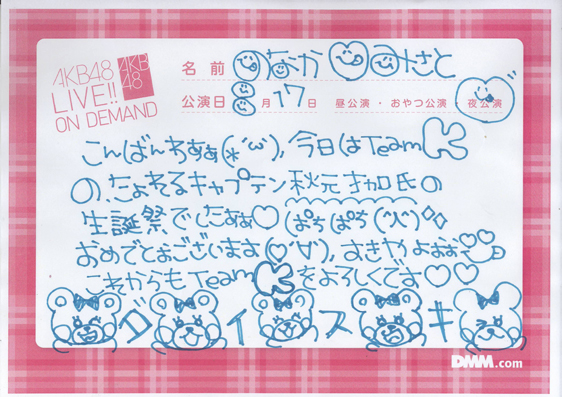 AKB48
LIVE!!
ON DEMAND
AKB
48
名前 のなか みさと
公演日 8月17日 昼公演・おやつ公演・夜公演
こんばんわぁぁ(*´ω`),今日はTeam K
の,たよれるキャプテン秋元才加氏の
生誕祭でしたぁぁ♡(ぱちぱち(´人`)◇◇
おめでとぉございます(♡´∀`),すきやよぉぉ
これからもTeam Kをよろしくです♡♡
ダイスキ
DMM.com